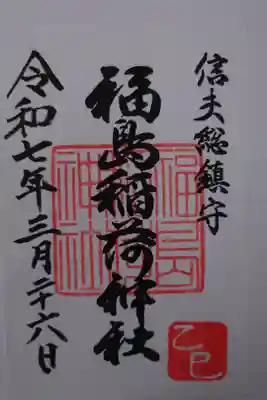 信夫総鎮守
福島稲荷神社
令和七年三月二十六日
福島
神社
乙巳